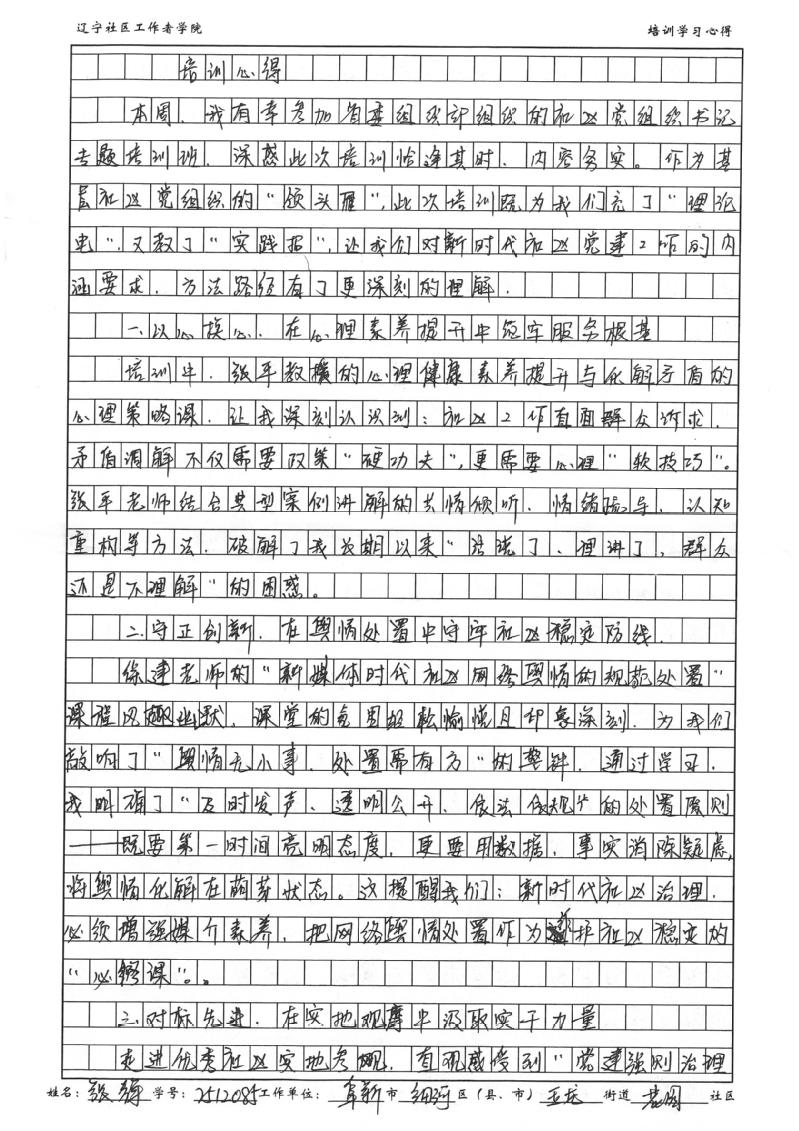 辽宁社区工作者学院 培训学习心得
培训心得
本周,我有幸参加省委组织部组织的社区党组织书记
专题培训班,深感此次培训恰逢其时、内容务实。作为基
层社区党组织的“领头雁”,此次培训既为我们充了“理论
电”,又教了“实践招”,让我们对新时代社区党建工作的内
涵要求、方法路径有了更深刻的理解.
一、以心换心,在心理素养提升中筑牢服务根基
培训中,张平教授的心理健康素养提升与化解矛盾的
心理策略课,让我深刻认识到:社区工作直面群众诉求,
矛盾调解不仅需要政策“硬功夫”,更需要心理“软技巧”。
张平老师结合典型案例讲解的共情倾听、情绪疏导、认知
重构等方法,破解了我长期以来“法说了、理讲了,群众
还是不理解”的困惑。
二、守正创新,在舆情处置中守牢社区稳定防线.
徐建老师的“新媒体时代社区网络舆情的规范处置”
课程风趣幽默,课堂的氛围轻松愉悦且印象深刻,为我们
敲响了“舆情无小事,处置需有方”的警钟,通过学习,
我明确了“及时发声、透明公开、依法依规”的处置原则
——既要第一时间亮明态度,更要用数据、事实消除疑虑,
将舆情化解在萌芽状态。这提醒我们:新时代社区治理,
必须增强媒介素养,把网络舆情处置作为维护社区稳定的
“必修课”。
三、对标先进,在实地观摩中汲取实干力量
走进优秀社区实地参观,直观感受到“党建强则治理
姓名:张静 学号:2512085 工作单位:阜新市 细河 区(县、市) 玉龙 街道 社区